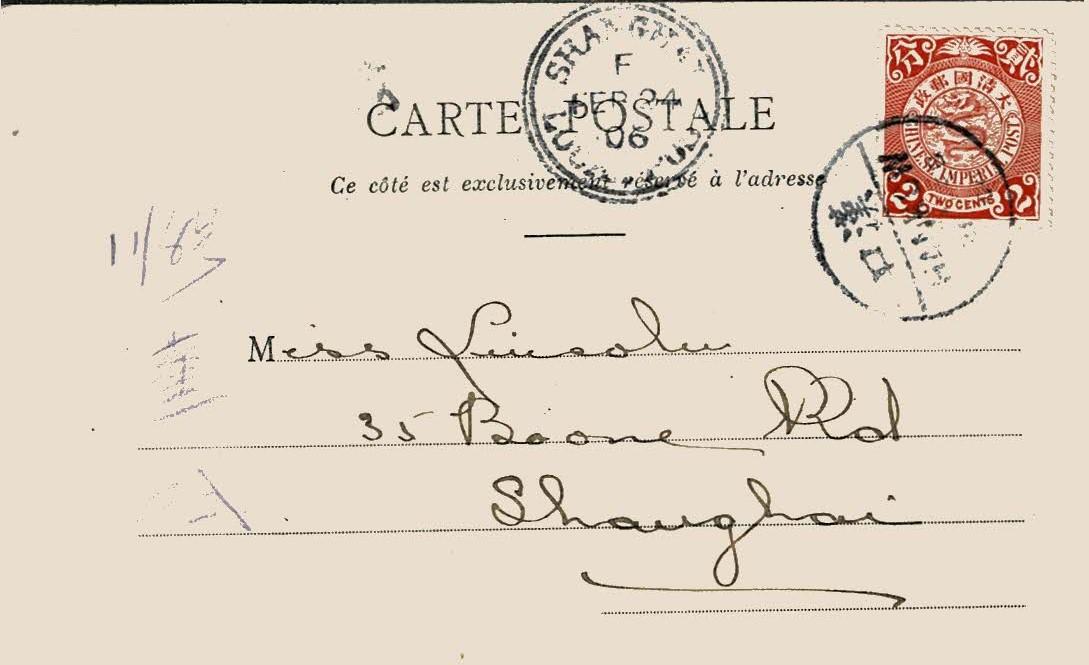 SHANGHAI
F
FEB 24
06
LOCAL POST
CARTE POSTALE
Ce côté est exclusivement réservé à l'adresse
分 貳
大清國郵政
CHINESE IMPERIAL POST
2 TWO CENTS 2
漢口
HANKOW
11/
Miss Lincoln
35 Boone Rd
Shanghai